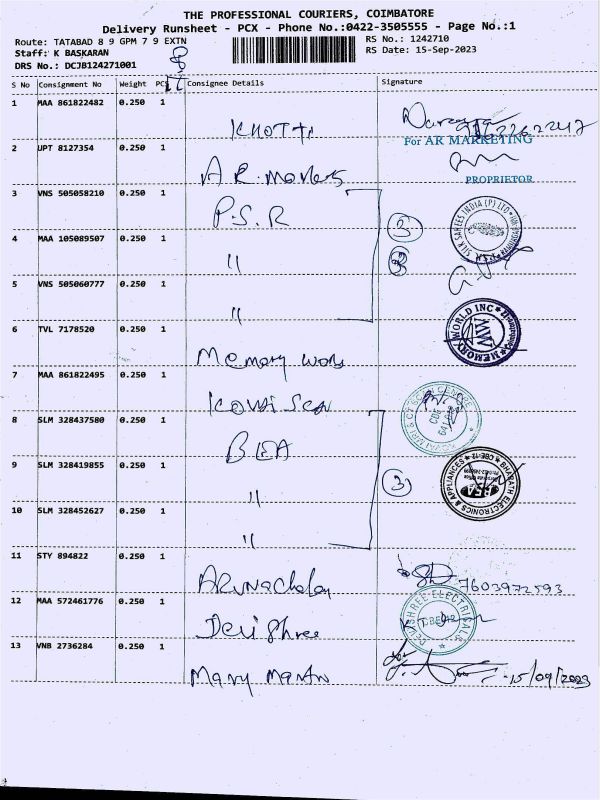 THE PROFESSIONAL COURIERS, COIMBATORE
Delivery Runsheet - PCX - Phone No.:0422-3505555 - Page No.:1
Route: TATABAD 8 9 GPM 7 9 EXTN
RS No.: 1242710
Staff: K BASKARAN
RS Date: 15-Sep-2023
DRS No.: DCJB124271001
S No Consignment No Weight PCS Consignee Details Signature
1 MAA 861822482 0.250 1
2 UPT 8127354 0.250 1 For AR MARKETING
A R. PROPRIETOR
3 VNS 505058210 0.250 1 P.S.R (3) SILK SAREES INDIA (P) LTD
4 MAA 105089507 0.250 1 "
5 VNS 505060777 0.250 1 "
6 TVL 7178520 0.250 1 MEMORY WORLD INC
Memory
7 MAA 861822495 0.250 1 Kovai Scan
8 SLM 328437580 0.250 1 BEA
9 SLM 328419855 0.250 1 " (3) BHARATH ELECTRONICS & APPLIANCES CBE-12 BEA
10 SLM 328452627 0.250 1 "
11 STY 894822 0.250 1 Arunachalam 7603972593
12 MAA 572461776 0.250 1 Devi Shree DEVISHREE ELECTRICALS CBE-12
13 VNB 2736284 0.250 1 15/09/2023
Many Maran